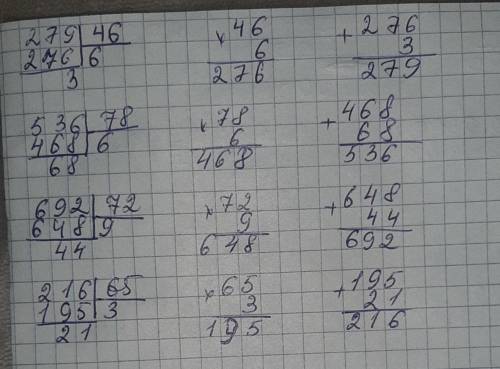 279 46 × 46 + 276
276 6 6 3
3 276 279
536 78 × 78 + 468
468 6 6 68
68 468 536
692 72 × 72 + 648
648 9 9 44
44 648 692
216 65 × 65 + 195
195 3 3 21
21 195 216